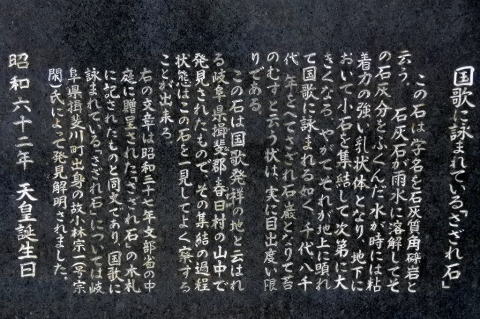 国歌に詠まれている「さざれ石」
この石は学名を石灰質角礫岩と
云う。石灰石が雨水に溶解してそ
の石灰分をふくんだ水が時には粘
着力の強い乳状体となり、地下に
おいて小石を集結して次第に大
きくなる。やがてそれが地上に顕れ
て国歌に詠まれる如く、千代、八千
代年をへてさざれ石巌となりて苔
のむすと云う状は、実に目出度い限
りである。
この石は国歌発祥の地と云はれ
る岐阜県揖斐郡春日村の山中で
発見されたもので、その集結の過程
状態はこの石を一見してよく察する
ことが出来る。
右の文章は昭和三十七年文部省の中
庭に贈呈された「さざれ石」の木札
に記されたものと同文であり、国歌に
詠まれている「さざれ石」については岐
阜県揖斐川町出身の故小林宗一(号宗
閑)氏によって発見解明されました。
昭和六十二年 天皇誕生日